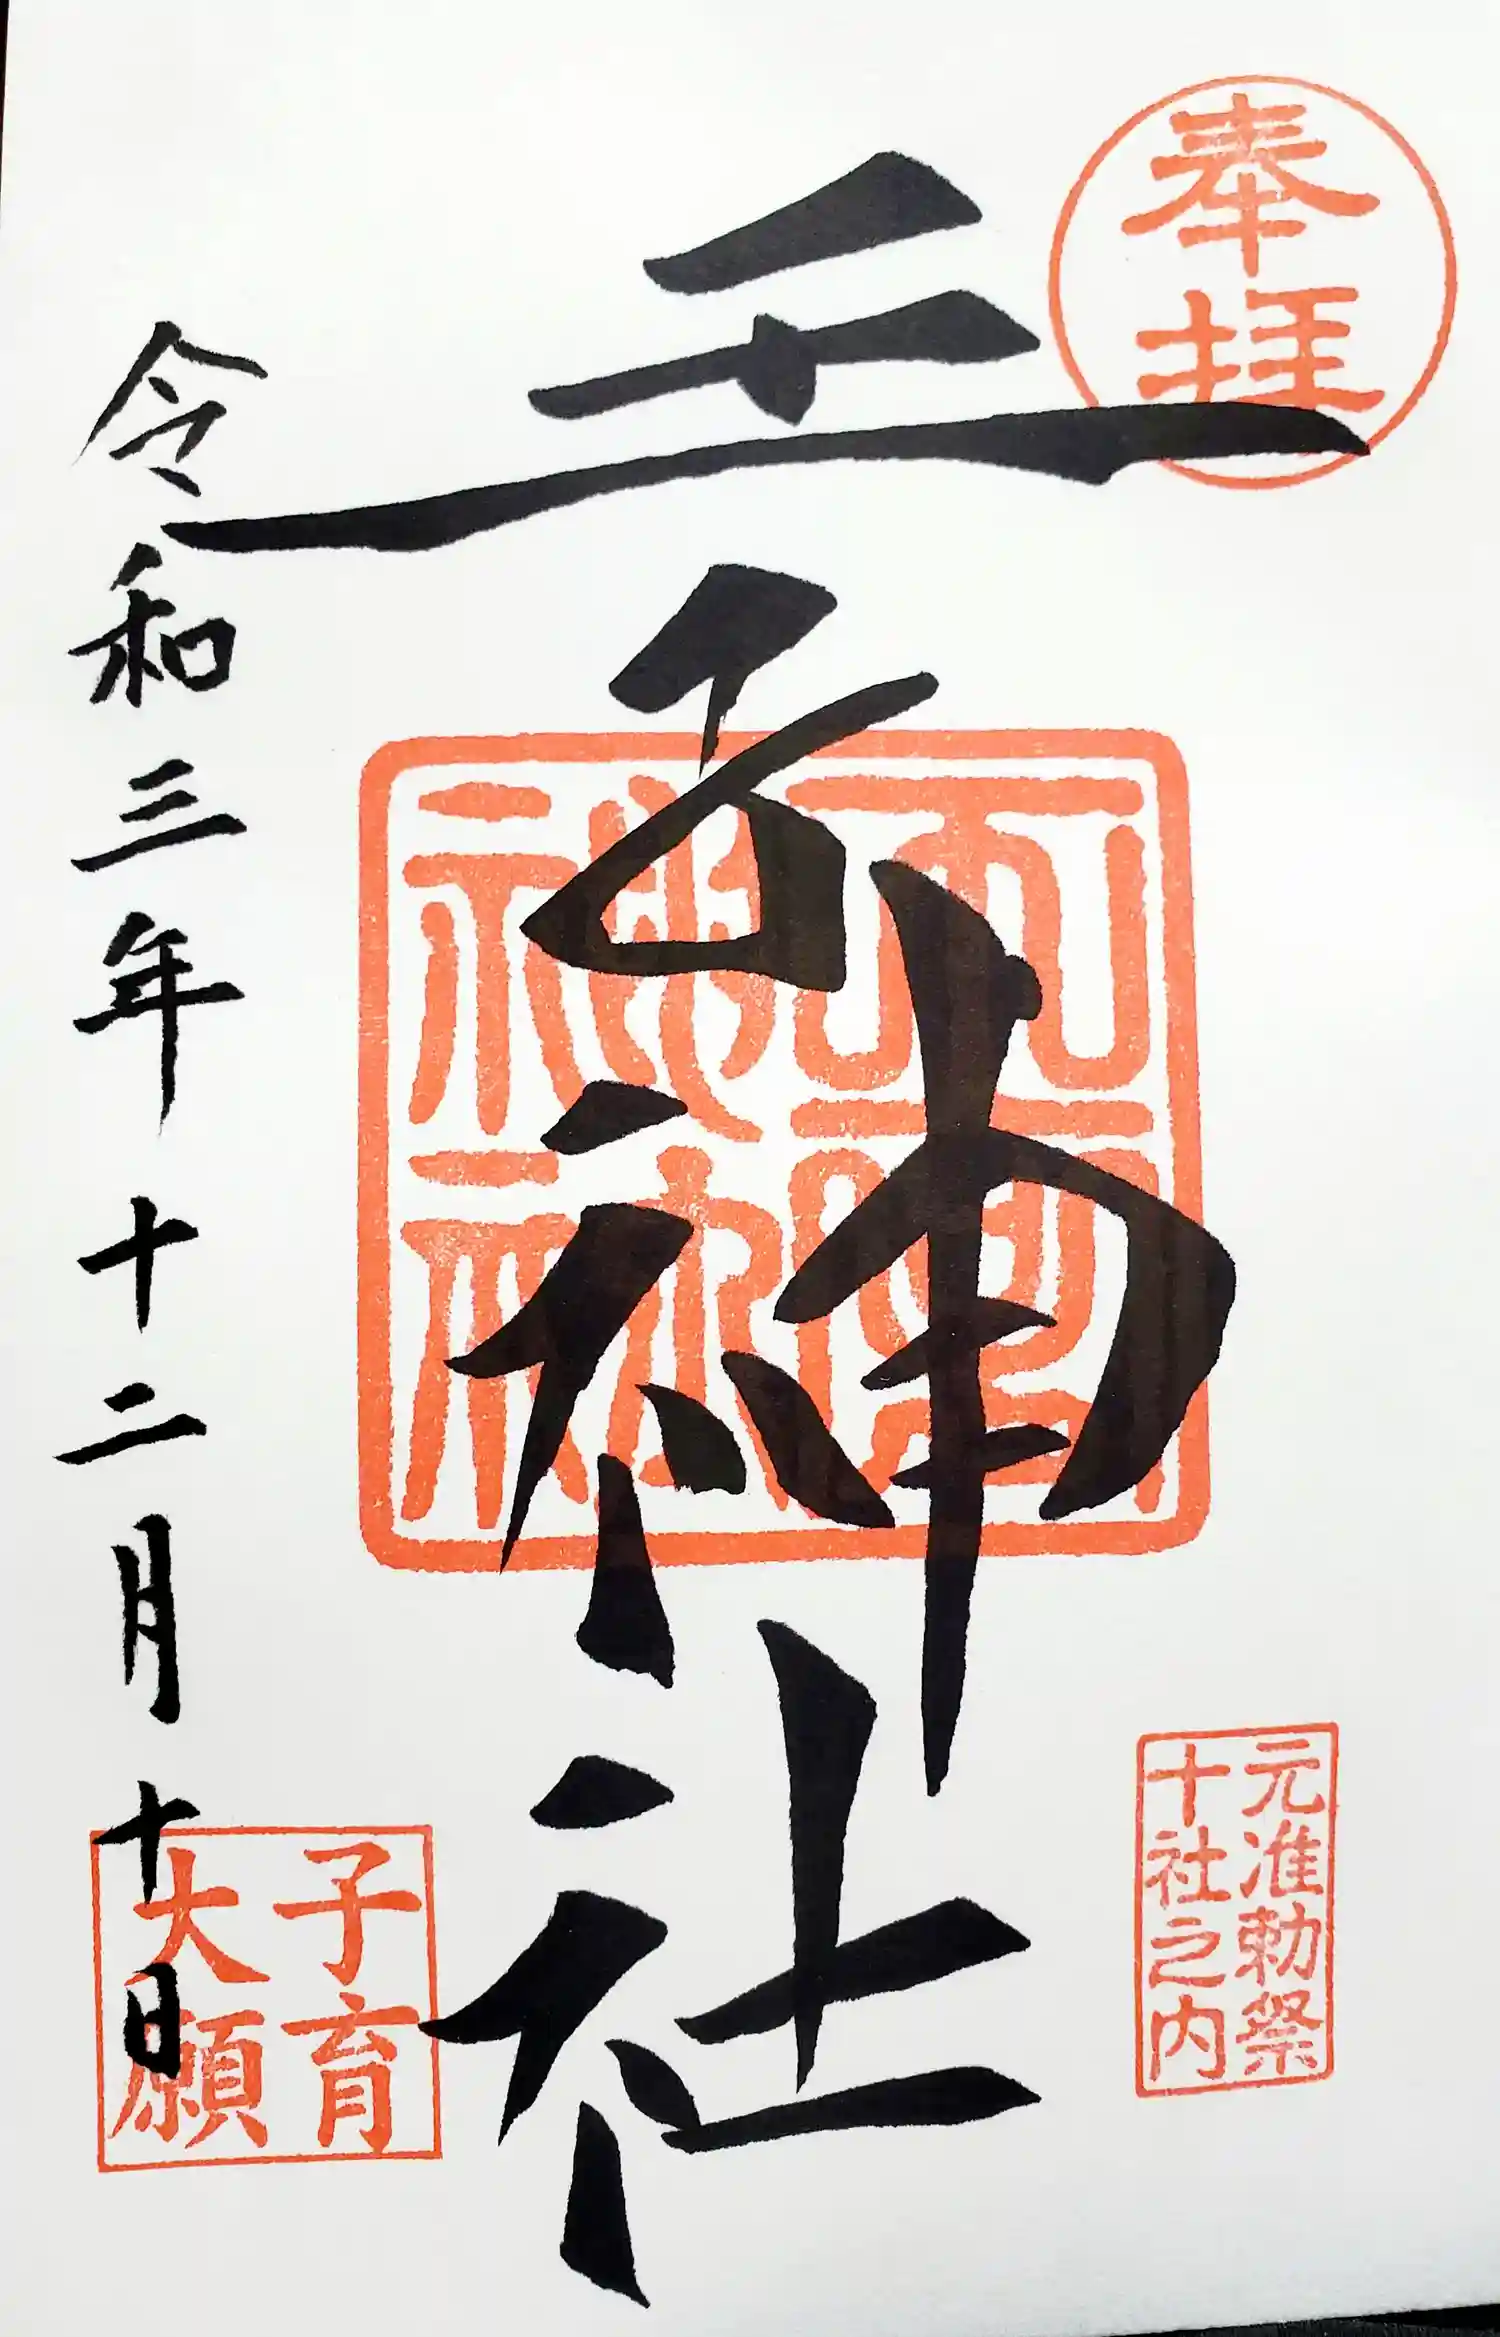 奉拝
元准勅祭
十社之内
王子神社
神社
子育
大願
令和三年十二月十日